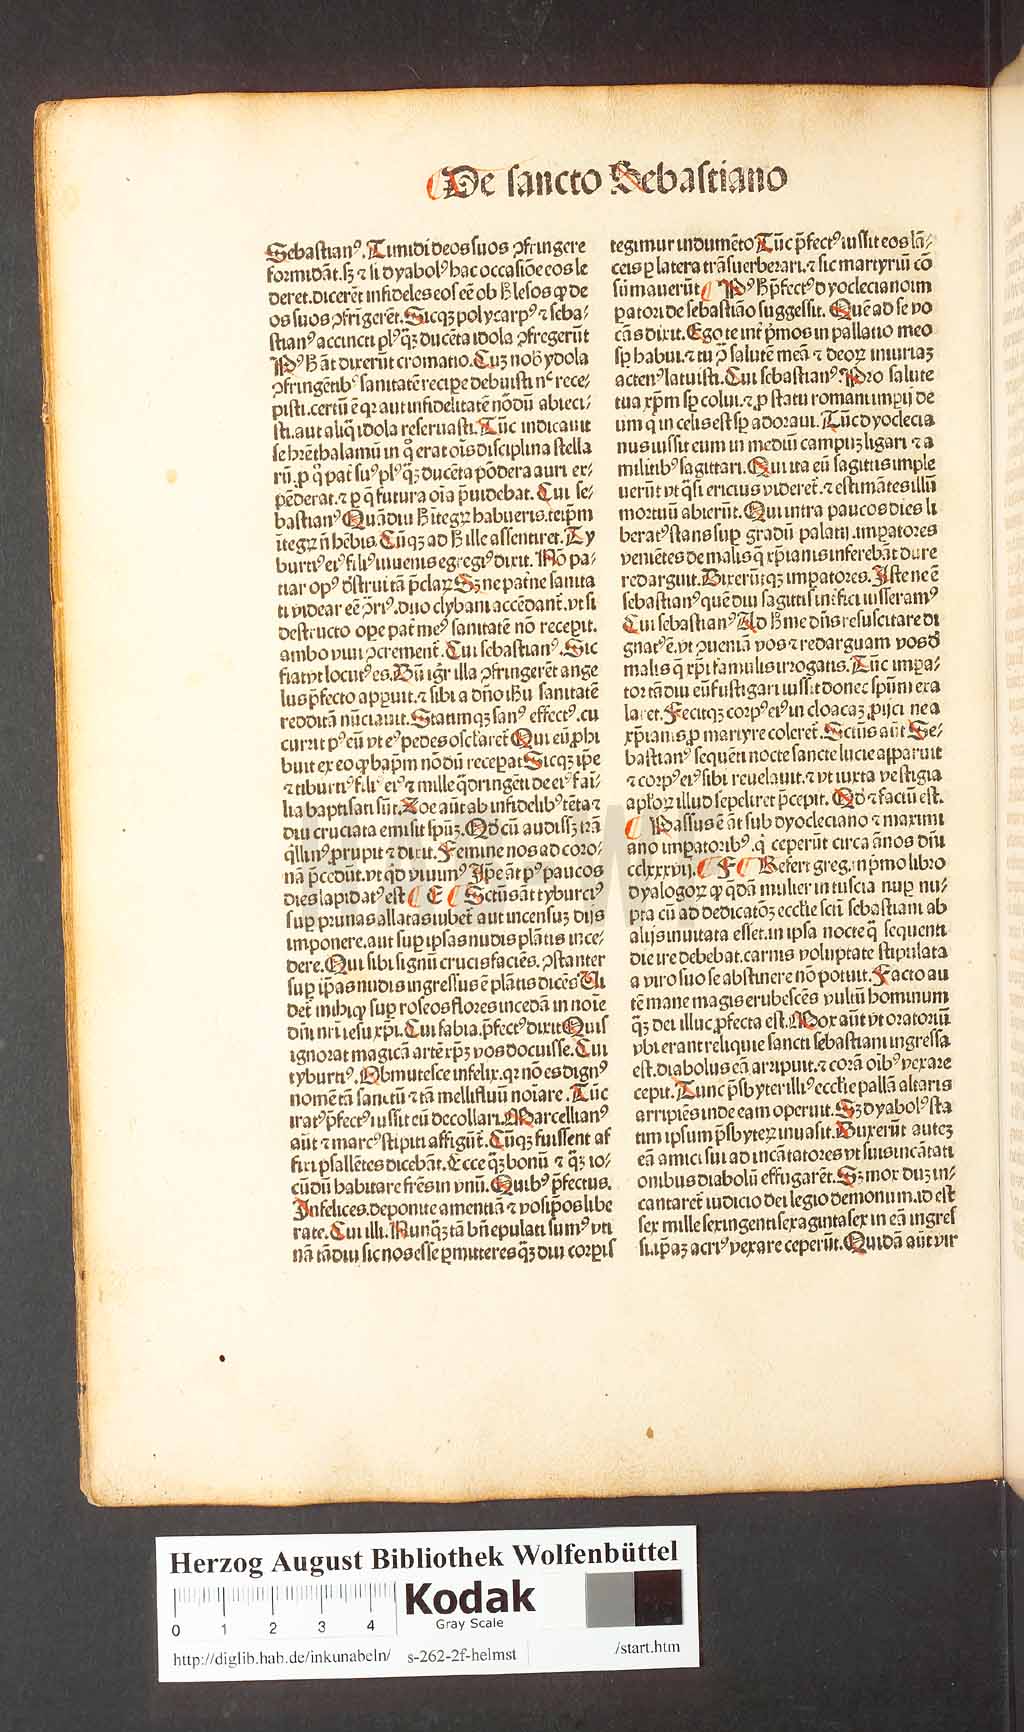 De sancto Sebastiano
Sebastianꝰ. Timidi deos suos ꝯfringere
formidāt. sꝫ ⁊ si dyabolꝰ hac occasiōe eos le
deret. dicerēt infideles eos eē ob h̄ lesos ꝙ de
os suos ꝯfrīgerēt. Sicqꝫ polycarpꝰ ⁊ seba-
stianꝰ accincti plꝰ qͣꝫ ducēta idola ꝯfregerūt
Pꝰ h̄ āt dixerūt cromatio. Cuꝫ nob̄ ydola
ꝯfringētibꝰ sanitatē recipe debuisti nͨ rece-
pisti. certū ē qꝛ aut infidelitatē nōdū abieci-
sti. aut aliq̄ idola reseruasti. Tūc indicauit
se hr̄e thalamū in qͦ erat oīs disciplina stella
rū. ꝑ qͦ patͥ suꝰ plꝰ qͣꝫ ducēta pōdera auri ex-
pēderat. ⁊ ꝑ qͣ futura oīa p̄uidebat. Cui se-
bastianꝰ Quādiu h̄ ītegrꝫ habueris. teip̄m
ītegrꝫ nō hēbis. Cūqꝫ ad h̄ ille assentiret. Ty
burtiꝰ eiꝰ filiꝰ iuuenis egregiꝰ dixit. Nō pa-
tiar opꝰ dstrui tā p̄claꝝ Sꝫ ne patͥ ne sanita
ti videar eē ꝯͣriꝰ. duo clybani accēdant̄. vt si
destructo oꝑe patͥ meꝰ sanitatē nō receꝑit.
ambo viui ꝯcrement̄. Cui sebastianꝰ. Sic
fiat vt locutꝰ es. Dū igr̄ illa ꝯfringerēt ange
lus p̄fecto apparuit. ⁊ sibi a dn̄o ih̄u sanitatē
redditā nūciauit. Statimqꝫ sanꝰ effectꝰ. cu
currit pꝰ eū vt eiꝰ pedes oscl̄aret̄ Qui eū ꝓhi
buit ex eo ꝙ bap̄m nōdū receꝑat Sicqꝫ ip̄e
⁊ tiburtiꝰ filiꝰ eiꝰ ⁊ mille qͣdringēti de eiꝰ fai-
lia baptisati sūt. Zoe aūt ab infidelibꝰ tēta ⁊
diu cruciata emisit spūꝫ. Qd̄ cū audissꝫ trā
qͥllinꝰ ꝓrupit ⁊ dixit. Femine nos ad coro-
nā p̄cedūt. vt qͥd viuimꝰ Ip̄e āt pꝰ paucos
dies lapidatꝰ est E Sctūs āt tyburciꝰ
suꝑ prunas allatas iubet̄ aut incensuꝫ dijs
imponere. aut suꝑ ipsas nudis plātis ince-
dere. Qui sibi signū crucis faciēs. ꝯstanter
suꝑ ip̄as nudis ingressus ē plātis dicēs Ui
det̄ mihi ꝙ suꝑ roseos flores incedā in noīe
dn̄i nr̄i iesu xp̄i. Cui fabia. p̄fectꝰ dixit Quis
ignorat magicā artē xp̄ꝫ vos docuisse. Cui
tyburtiꝰ. Obmutesce infelix. qꝛ nō es dignꝰ
nomē tā sanctū ⁊ tā mellifluū noīare. Tūc
iratꝰ p̄fectꝰ iussit eū decollari. Marcellianꝰ
aūt ⁊ marcꝰ stipiti affigūt̄. Cūqꝫ fuissent af
fixi. psallētes dicebāt. Ecce qͣꝫ bonū ⁊ qͣꝫ io-
cūdū habitare fr̄es in vnū. Quibꝰ p̄fectus.
Infelices. deponite amentiā ⁊ vosip̄os libe
rate. Cui illi. Nunqͣꝫ tā bn̄ epulati sumꝰ vti
nā tādiu sic nos esse ꝑmitteres qͣꝫ diu corꝑis
tegimur indumēto Tūc p̄fectꝰ iussit eos lā-
ceis ꝑ latera trāsuerberari. ⁊ sic martyriū cō
sūmauerūt Pꝰ h̄ p̄fectꝰ dyocleciano im
ꝑatori de sebastiāo suggessit. Quē ad se vo
cās dixit. Ego te int̄ pͥmos in pallatio meo
sꝑ habui. ⁊ tu ꝯͣ salutē meā ⁊ deoꝝ iniuriaꝫ
actenꝰ latuisti. Cui sebastianꝰ. Pro salute
tua xp̄m sꝑ colui. ⁊ ꝓ statu romani impij de
um q in celis est sꝑ adoraui. Tūc dyoclecia
nus iussit eum in mediū campuꝫ ligari ⁊ a
militibꝰ sagittari. Qui ita eū sagittis imple
uerūt vt qͣsi ericius videret̄. ⁊ estimātes illū
mortuū abierūt. Qui intra paucos dies li
beratꝰ stans suꝑ gradū palatij. imꝑatores
veniētes de malis q̄ xp̄ianis inferebāt dure
redarguit. Dixerūtqꝫ imꝑatores. Iste ne ē
sebastianꝰ quē diu sagittis int̄fici iusseramꝰ
Cui sebastianꝰ Ad h̄ me dn̄s resuscitare di
gnatꝰ ē. vt ꝯueniā vos ⁊ redarguam vos d̓
malis q̄ xp̄i famulis irrogatis. Tūc imꝑa-
tor tādiu eū fustigari iussit donec spūm exa
laret. Fecitqꝫ corpꝰ eiꝰ in cloacaꝫ ꝓijci ne a
xp̄ianis ꝓ martyre coleret̄. Sctūs aūt Se-
bastianꝰ sequēti nocte sancte lucie apparuit
⁊ corpꝰ eiꝰ sibi reuelauit. ⁊ vt iuxta vestigia
apl̓oꝝ illud sepeliret p̄cepit. Qd̓ ⁊ factū est.
Passus ē āt sub dyocleciano ⁊ maximi
ano imꝑatoribꝰ. qͥ ceperūt circa ānos dn̄i
cclxxxvij. F Refert greg. in pͥmo libro
dyalogoꝝ ꝙ qͦdā mulier in tuscia nuꝑ nu-
pta cū ad dedicatōꝫ eccl̓ie scī sebastiani ab
alijs inuitata esset. in ipsa nocte qͣ sequenti
die ire debebat. carnis voluptate stipulata
a viro suo se abstinere nō potuit. Facto au
tē mane magis erubescēs vultū hominum
qͣꝫ dei illuc ꝓfecta est. Mox aūt vt oratoriū
vbi erant reliquie sancti sebastiani ingressa
est. diabolus eā arripuit. ⁊ corā oībꝰ vexare
cepit. Tunc p̄sbyter illiꝰ eccl̓ie pallā altaris
arripiēs inde eam operuit. Sꝫ dyabolꝰ sta
tim ipsum p̄sbyteꝝ inuasit. Duxerūt auteꝫ
eā amici sui ad incātatores vt suis incātati
onibus diabolū effugarēt. Sꝫ mox duꝫ in-
cantaret̄ iudicio dei legio demonum. id est
sex mille sexingenti sexaginta sex in eā ingres
si. ip̄aꝫ acriꝰ vexare ceperūt. Quidā aūt vir
Herzog August Bibliothek Wolfenbüttel
0 1 2 3 4
Kodak
Gray Scale
http://diglib.hab.de/inkunabeln/ s-262-2f-helmst /start.htm